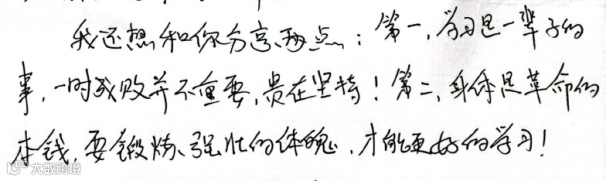 我还想和你分享两点：第一，学习是一辈子的
事，一时成败并不重要，贵在坚持！第二，身体是革命的
本钱，要锻炼强壮的体魄，才能更好的学习！